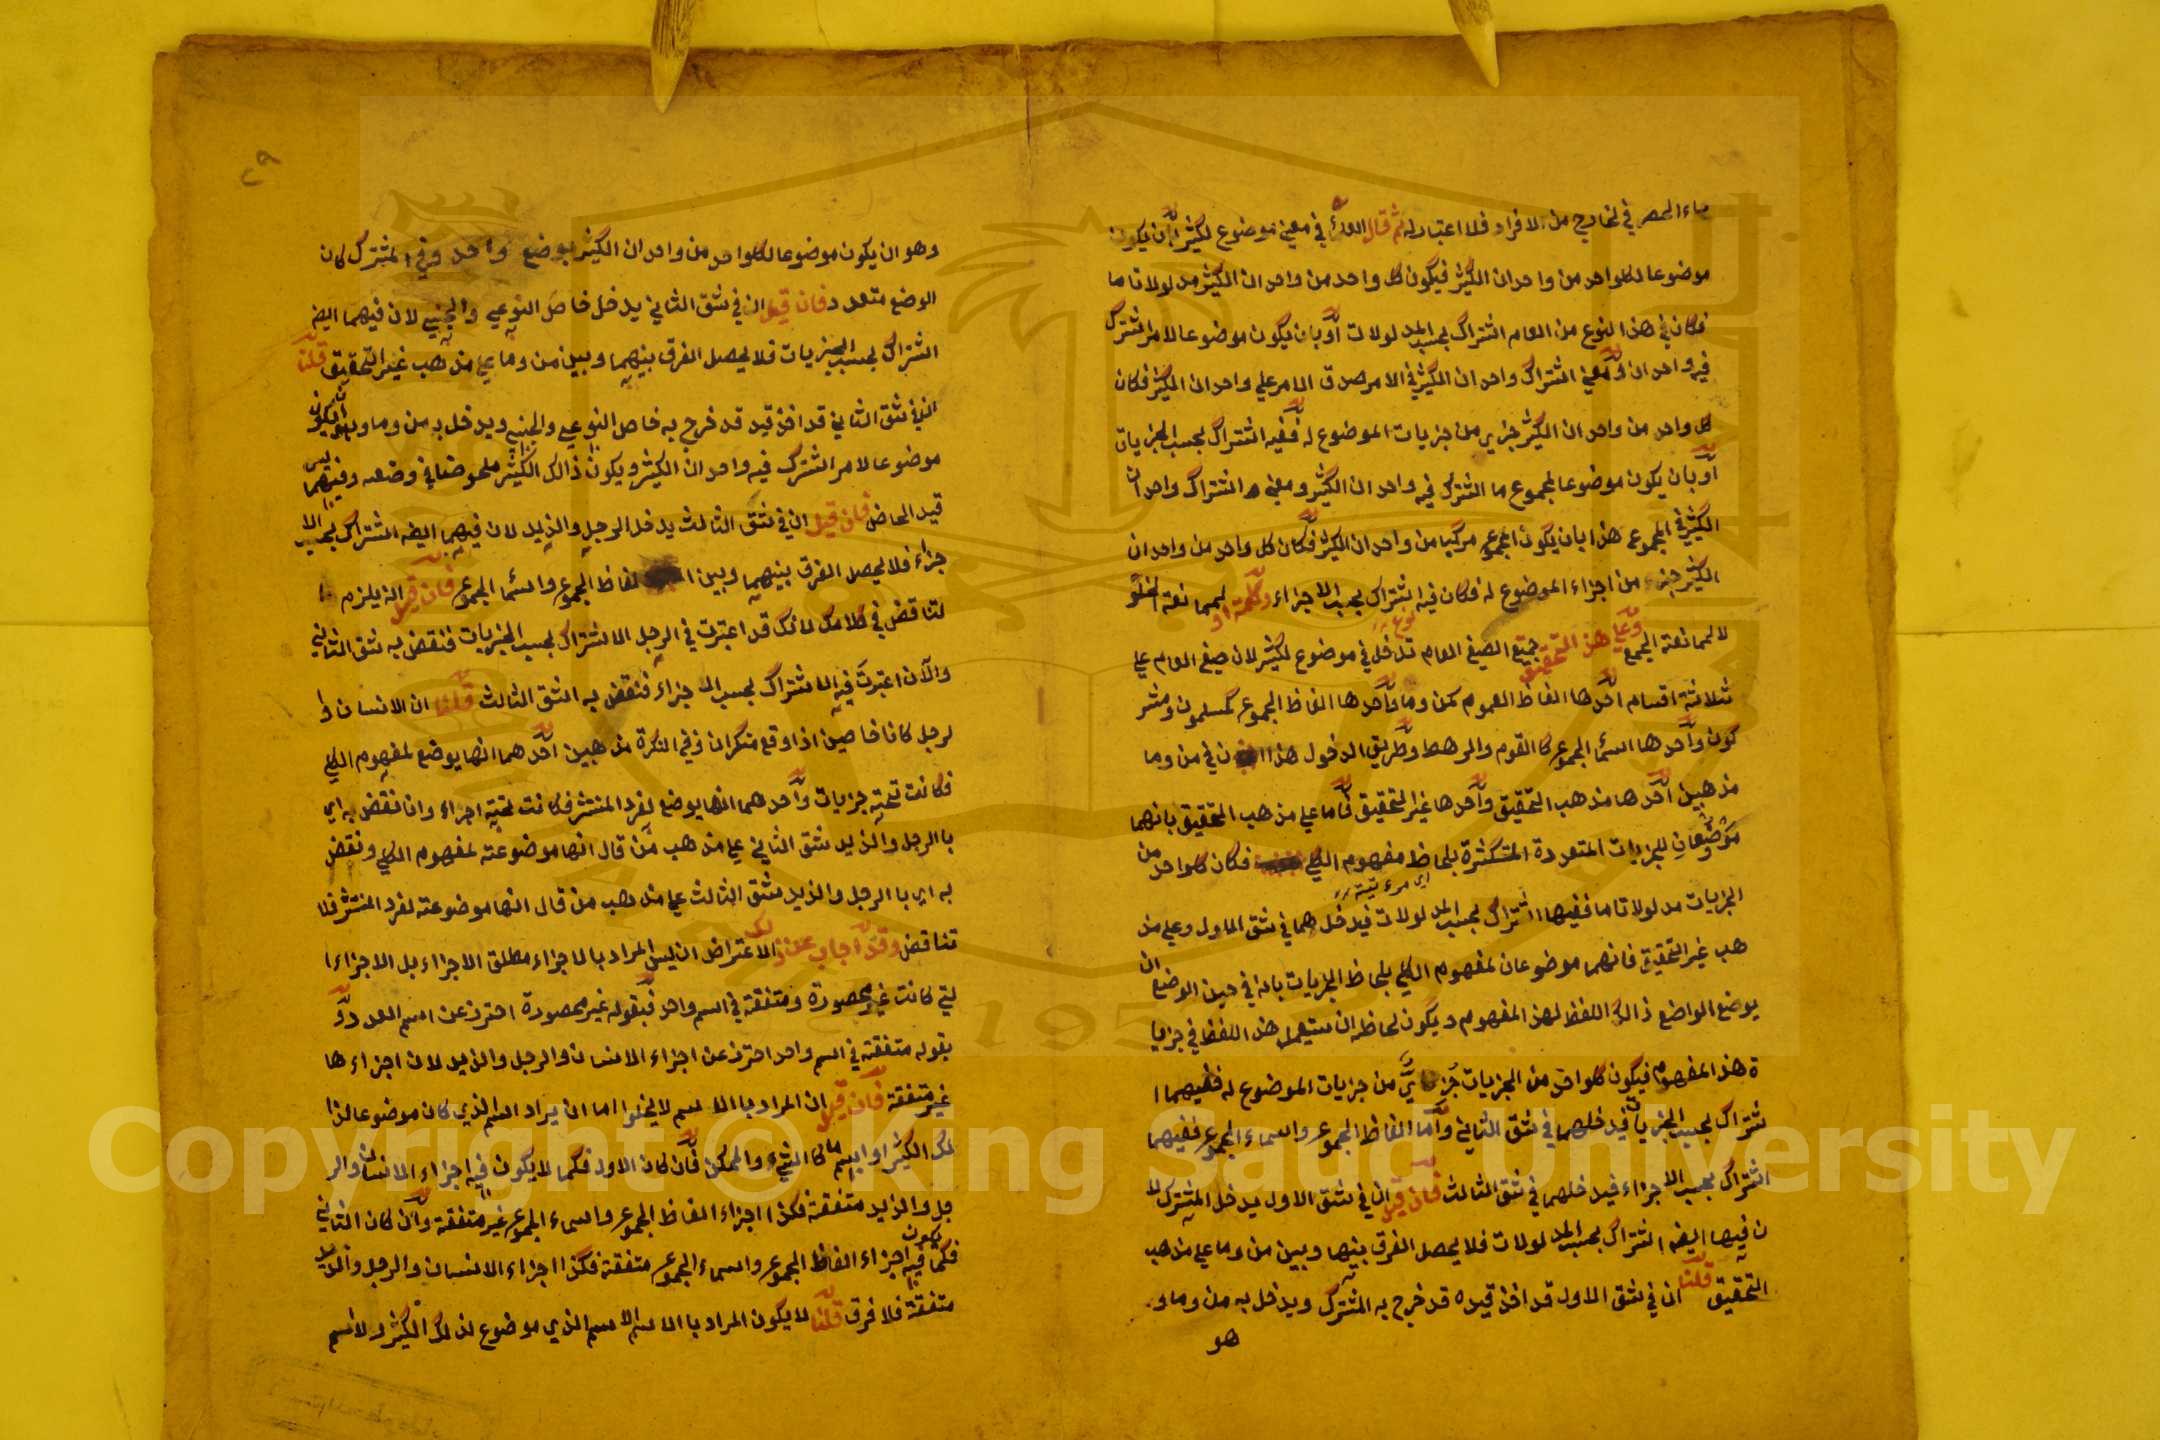 باء الحصر في الخارج من الافراد فلا اعتبار له ثم قال العلامة في معنى موضوع لكثير بأن يكون
موضوعا لكلواحد من واحدان الكثير فيكون كل واحد من واحدان الكثير مدلولا تاما
فكان في هذا النوع من العام اشتراك بحسب المدلولات أو بان يكون موضوعا لامر اشترك
فيه واحدان ومعنى اشتراك واحدان الكثير في الامر صدق الامر علي واحدان الكثير فكان
كل واحد من واحدان الكثير جزير من جزيات الموضوع له ففيه اشتراك بحسب الجزيات
أو بان يكون موضوعا لمجموع ما اشترك فيه واحدان الكثير ومعني اشتراك واحدان
الكثير في المجموع هذا بان يكون المجموع مركبا من واحدان الكثير فكان كل واحد من واحدان
الكثير جزء من اجزاء الموضوع له فكان فيه اشتراك بحسب الاجزاء وكلمة او لممانعة الخلو
لا لممانعة الجمع وعلي هذا التحقيق جميع الصيغ العام تدخل في موضوع لكثير لان صيغ العام علي
نوع
ثلاثة اقسام احدها الفاظ العموم كمن وما وأحدها الفاظ المجموع كمسلمون ومشر
كون وأحدها اسماء المجموع كالقوم والرهط وطريق الدخول هذا ان في من وما
مذهبين أحدها مذهب التحقيق وأحدها غير التحقيق فأما علي مذهب التحقيق بانهما
موضوعان للجزيات المتعددة المتكثرة بلحاظ مفهوم الكلي فكان كلواحد من
الجزيات مدلولا تاما ففيها اشتراك بحسب المدلولات فيدخل هما في شق الاول وعلي مذ
هب غير التحقيق فانهما موضوعان لمفهوم الكلي بلحاظ الجزيات بانه في حين الوضع ان
يوضع الواضع ذالك اللفظ لهذا المفهوم ويكون لحاظه ان يستعمل هذا اللفظ في جزيا
ة هذا المفهوم فيكون كلواحد من الجزيات جزئي من جزيات الموضوع له ففيهما ا
شتراك بحسب الجزيات فيدخلهما في شق الثاني وأما الفاظ المجموع واسماء المجموع ففيهما
اشتراك بحسب الاجزاء فيدخلهما في شق الثالث فان قيل ان في شق الاول يدخل المشترك لا
ن فيها ايضه اشتراك بحسب المدلولات فلا يحصل الفرق بينها وبين من وما علي مذهب
التحقيق قلنا ان في شق الاول قد اخذ قيده قد خرج به المشترك ويدخل به من وما و
هو
٢٩
وهو ان يكون موضوعا لكلواحد من واحدان الكثير بوضع واحد وفي المشترك كان
الوضع متعدد فان قيل ان في شق الثاني يدخل خاص النوعي والجنسي لان فيهما ايضه
اشتراك بحسب الجزيات فلا يحصل الفرق بينهما وبين من وما علي مذهب غير التحقيق قلنا
ان في شق الثاني قد اخذ قيد قد خرج به خاص النوعي والجنسي ويدخل به من وما وهو ان يكون
موضوعا لامر اشترك فيه واحدان الكثير ويكون ذالك الكثير ملحوظا في وضعه وفيهما ليس
قيد الحاظ فان قيل ان في شق الثالث يدخل الرجل والزيد لان فيهما ايضه اشتراك بحسب الا
جزاء فلا يحصل الفرق بينهما وبين الفاظ المجموع واسماء المجموع فان قيل انه يلزم ا
لتناقض في كلامك لانك قد اعتبرت في الرجل الاشتراك بحسب الجزيات فنقض به شق الثاني
والآن اعتبرت فيه الاشتراك بحسب الاجزاء فنقض به الشق الثالث قلنا ان الانسان وا
لرجل كانا خاصين اذا وقع منكران ففي النكرة مذهبين أحدهما انها يوضع لمفهوم الكلي
فكانت تحته جزيات وأحدهما انها يوضع لفرد المنتشر فكانت تحته اجزاء وانا نقض به اي
بالرجل والزيد شق الثاني علي مذهب من قال انها موضوعة لمفهوم الكلي ونقض
به اي بالرجل والزيد شق الثالث علي مذهب من قال انها موضوعة لفرد المنتشر فلا
تناقض وقد أجاب عن ذلك الاعتراض ان ليس المراد بالاجزاء مطلق الاجزاء بل الاجزاء ا
لتي كانت غير محصورة ومتفقة في اسم واحد فبقوله غير محصورة احترز عن اسم العدد و
بقوله متفقة في اسم واحد احترز عن اجزاء الانسان والرجل والزيد لان اجزاءها
غير متفقة فان قيل ان المراد بالاسم لا يخلوا اما ان يراد اسم الذي كان موضوعا لذا
لك الكثير او اسم ما كالشيء والممكن فأن كان الاول فكما لا يكون فيه اجزاء الانسان والر
جل والزيد متفقة فكذا اجزاء الفاظ المجموع واسماء المجموع غير متفقة وأن كان الثاني
فكما يكون فيه اجزاء الفاظ المجموع واسماء المجموع متفقة فكذا اجزاء الانسان والرجل والزيد
متفقة فلا فرق قلنا لا يكون المراد بالاسم الاسم الذي موضوع لذلك الكثير ولا اسم
Copyright © King Saud University
1957